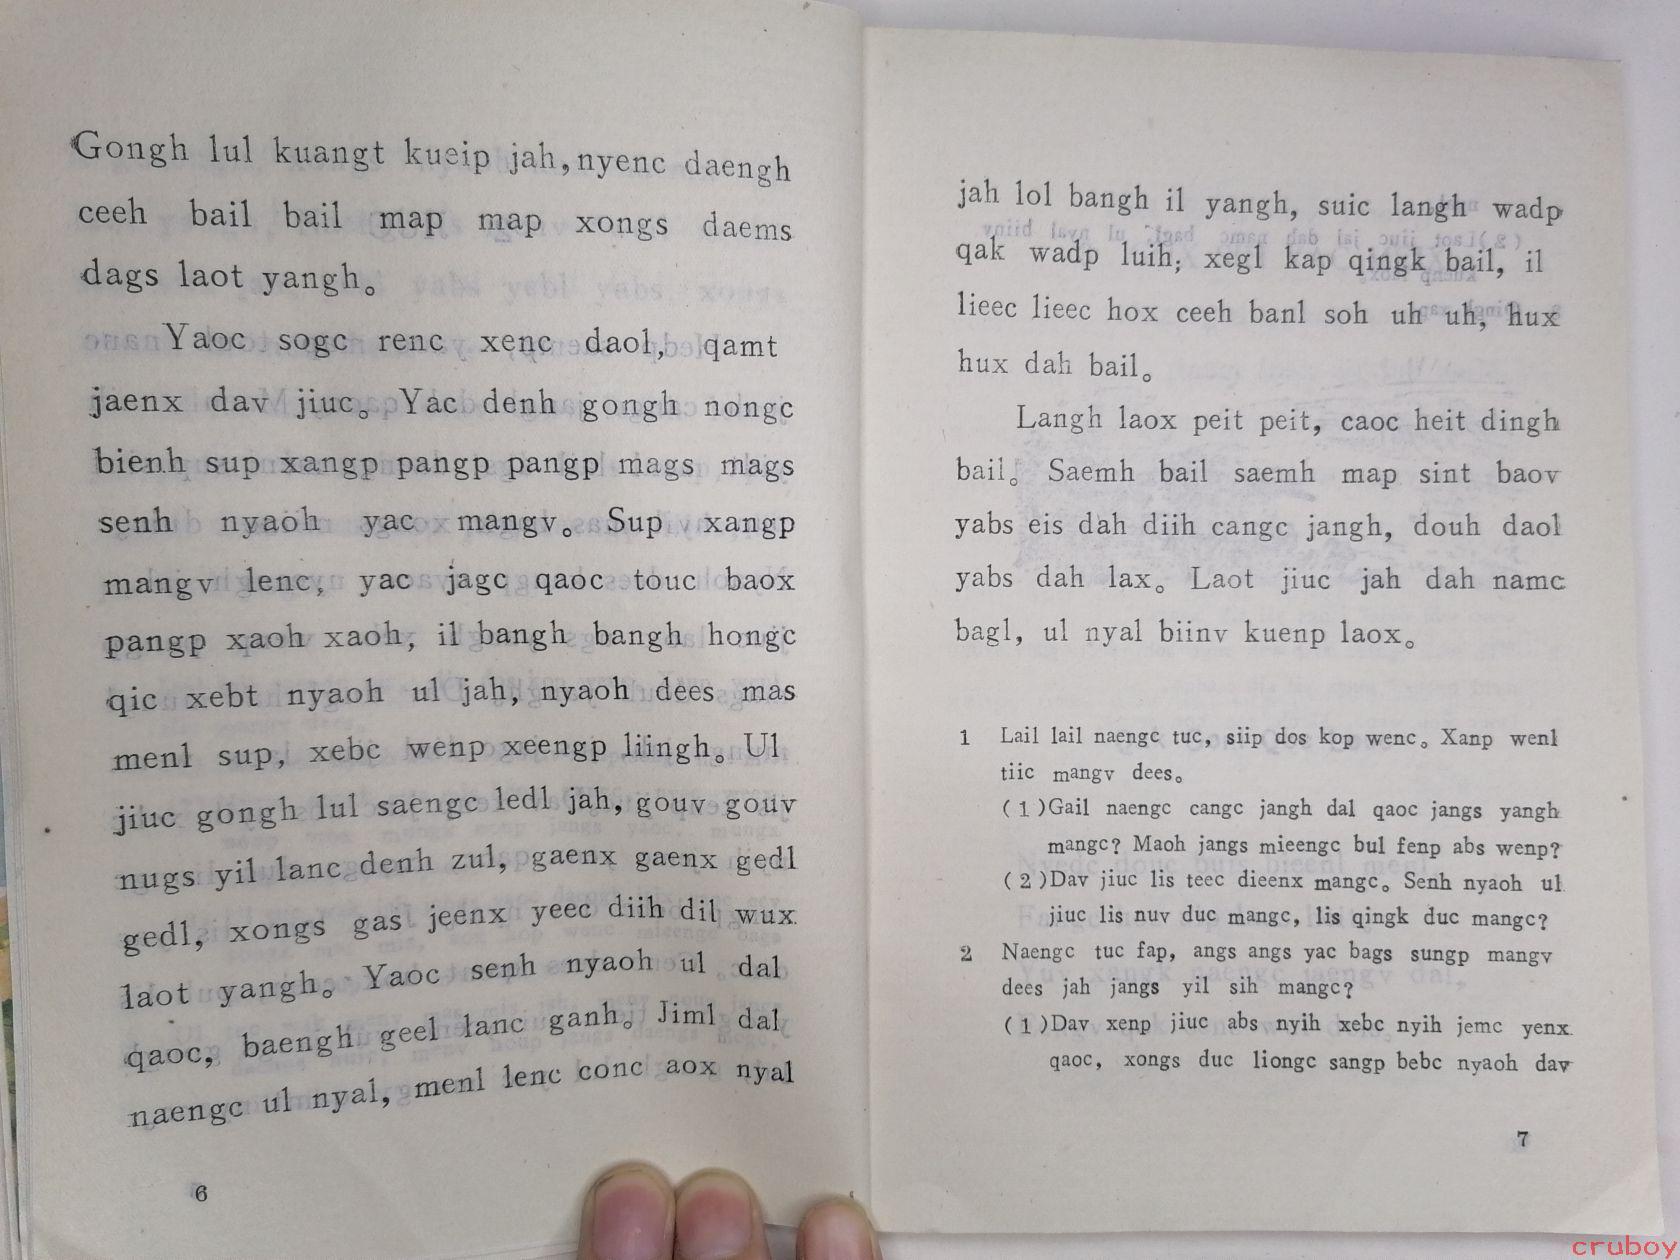 Gongh lul kuangt kueip jah, nyenc daengh
ceeh bail bail map map xongs daems
dags laot yangh。
Yaoc sogc renc xenc daol, qamt
jaenx dav jiuc。 Yac denh gongh nongc
bienh sup xangp pangp pangp mags mags
senh nyaoh yac mangv。 Sup xangp
mangv lenc, yac jagc qaoc touc baox
pangp xaoh xaoh, il bangh bangh hongc
qic xebt nyaoh ul jah, nyaoh dees mas
menl sup, xebc wenp xeengp liingh。 Ul
jiuc gongh lul saengc ledl jah, gouv gouv
nugs yil lanc denh zul, gaenx gaenx gedl
gedl, xongs gas jeenx yeec diih dil wux
laot yangh。 Yaoc senh nyaoh ul dal
qaoc, baengh geel lanc ganh。 Jiml dal
naengc ul nyal, menl lenc conc aox nyal
6
jah lol bangh il yangh, suic langh wadp
qak wadp luih; xegl kap qingk bail, il
lieec lieec hox ceeh banl soh uh uh, hux
hux dah bail。
Langh laox peit peit, caoc heit dingh
bail。 Saemh bail saemh map sint baov
yabs eis dah diih cangc jangh, douh daol
yabs dah lax。 Laot jiuc jah dah namc
bagl, ul nyal biinv kuenp laox。
1 Lail lail naengc tuc, siip dos kop wenc。 Xanp wenl
tiic mangv dees。
(1)Gail naengc cangc jangh dal qaoc jangs yangh
mangc? Maoh jangs mieengc bul fenp abs wenp?
(2)Dav jiuc lis teec dieenx mangc。 Senh nyaoh ul
jiuc lis nuv duc mangc, lis qingk duc mangc?
2 Naengc tuc fap, angs angs yac bags sungp mangv
dees jah jangs yil sih mangc?
(1)Dav xenp jiuc abs nyih xebc nyih jemc yenx
qaoc, xongs duc liongc sangp bebc nyaoh dav
7
cruboy